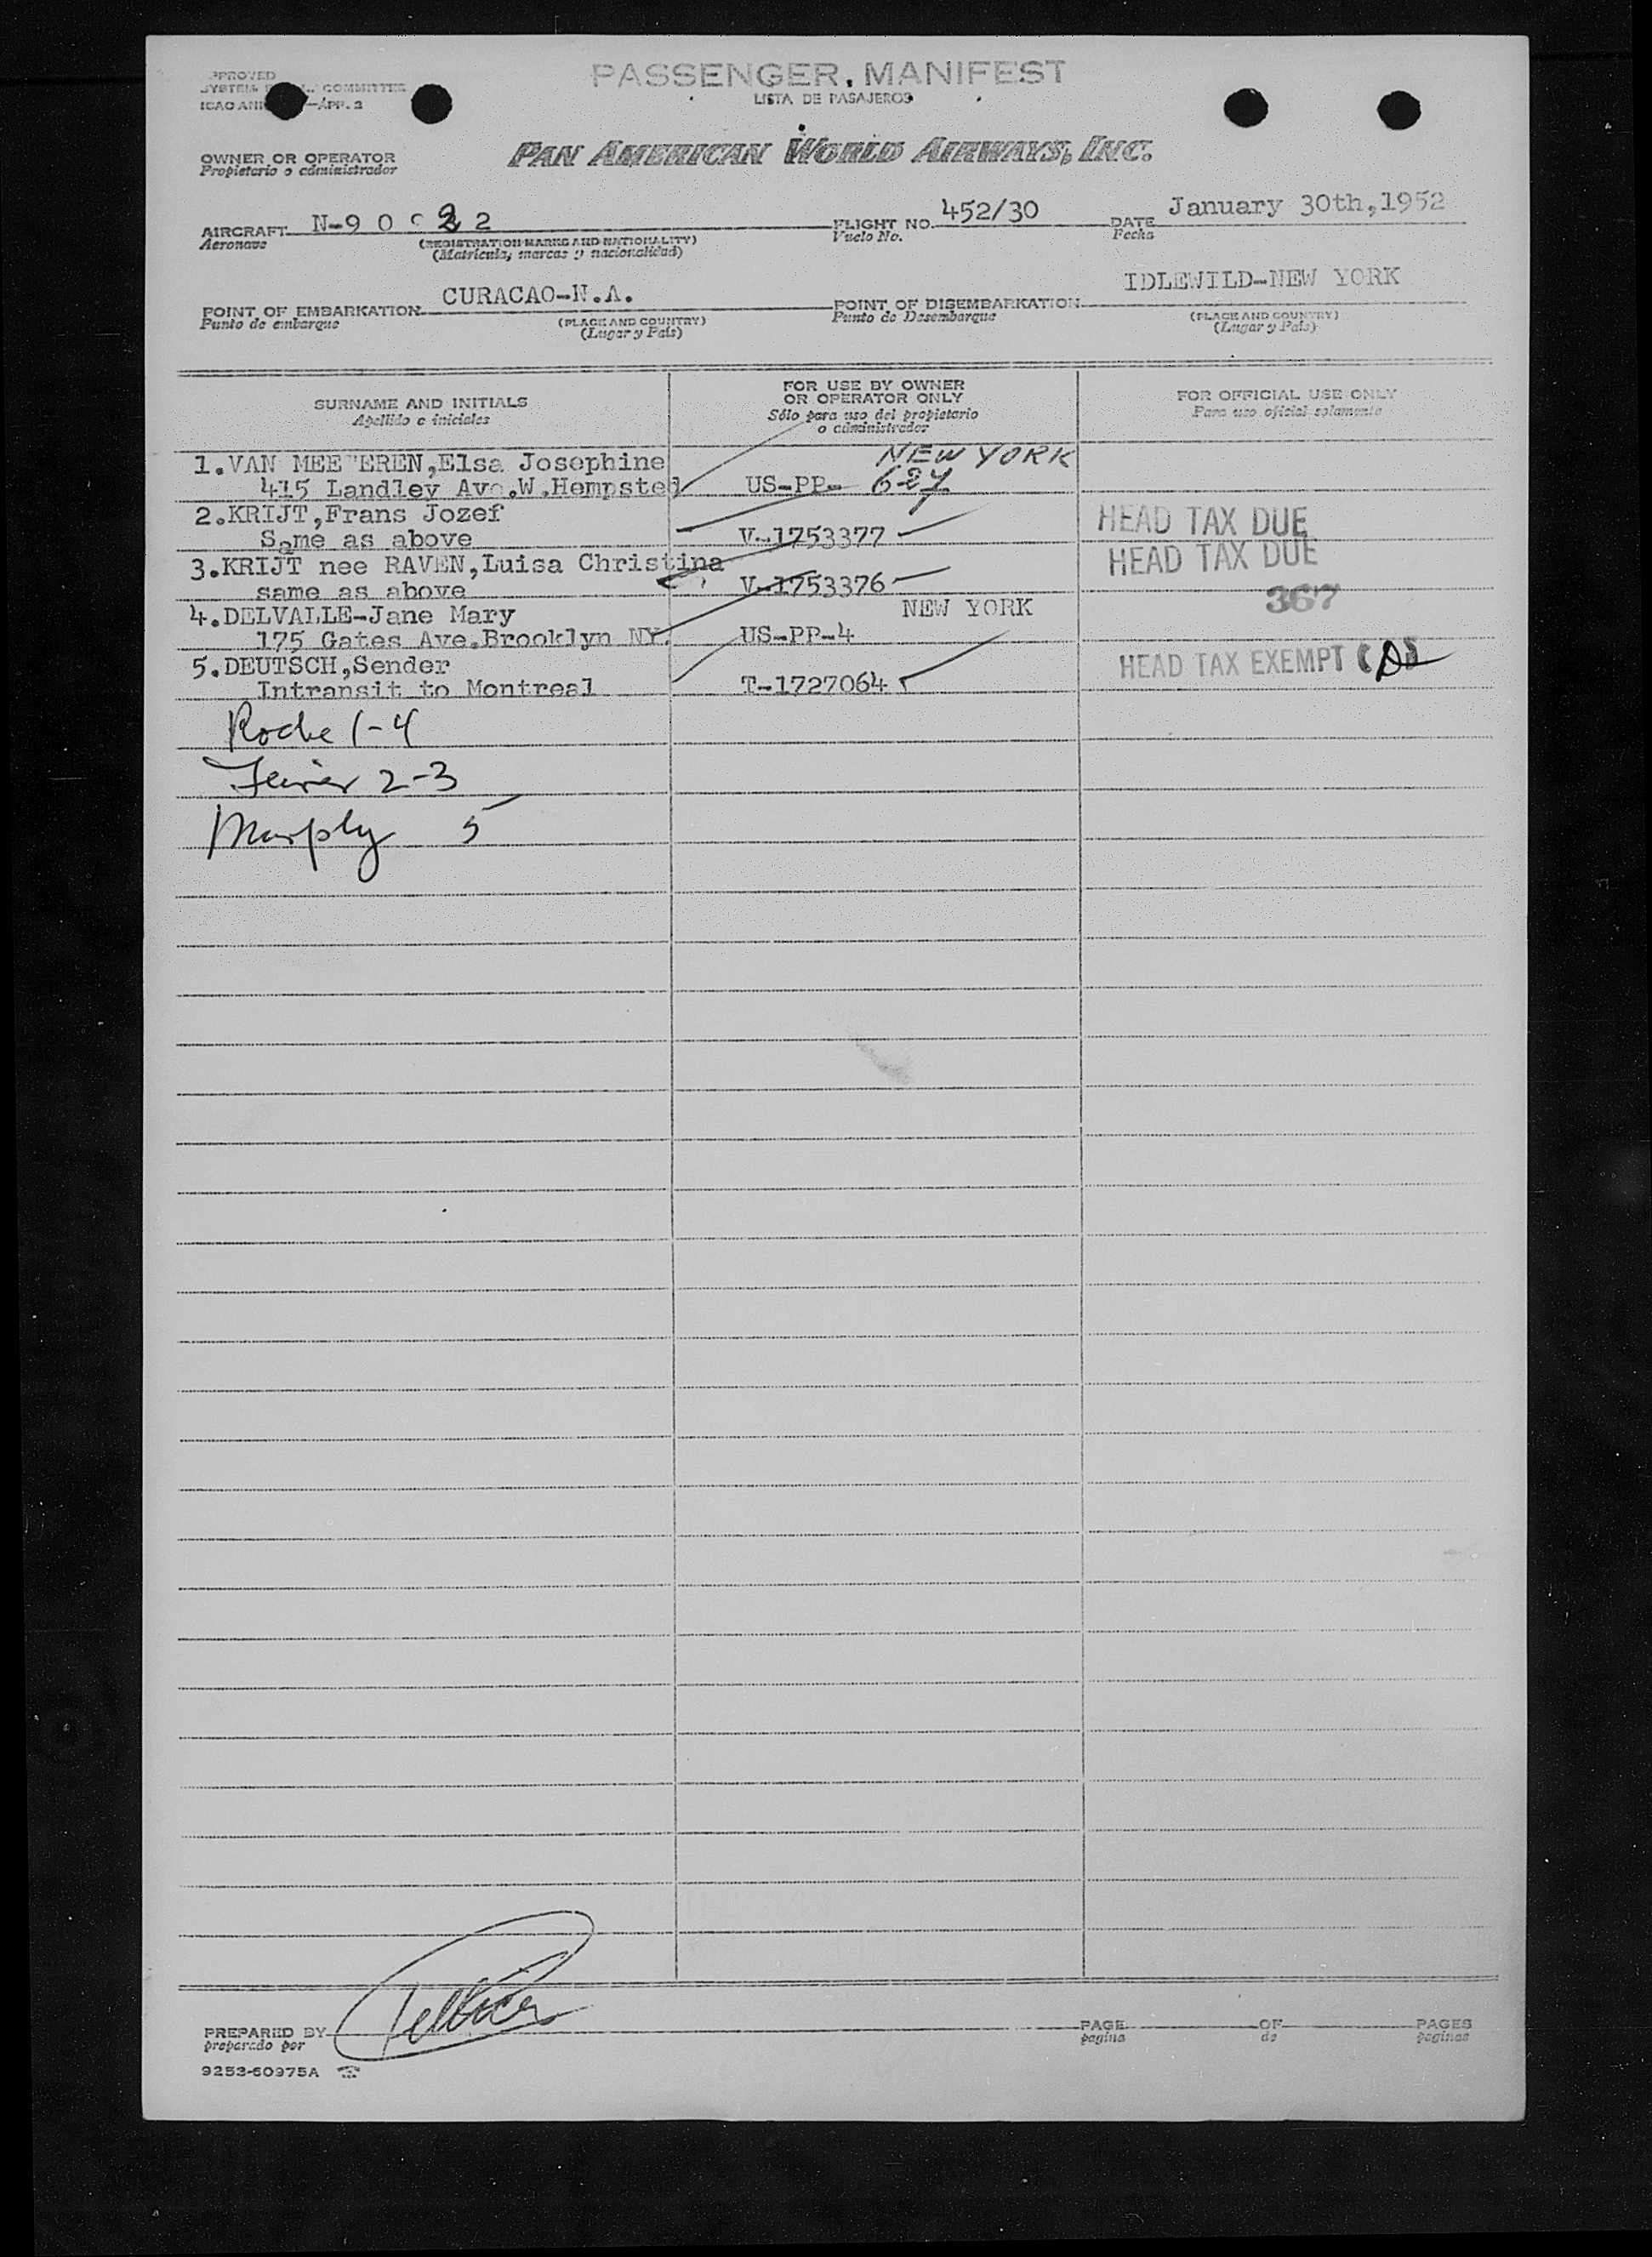 PASSENGER MANIFEST
LISTA DE PASAJEROS
PPROVED
SYSTEM COMMITTEE
ICAO —APP. 2
PAN AMERICAN WORLD AIRWAYS, INC.
OWNER OR OPERATOR
Propietario o administrador
AIRCRAFT N-9 0 9 2 2 FLIGHT NO. 452/30 DATE January 30th, 1952
Aeronave (REGISTRATION MARKS AND NATIONALITY) Vuelo No. Fecha
(Matricula, marcas y nacionalidad)
POINT OF EMBARKATION CURACAO-N.A. POINT OF DISEMBARKATION IDLEWILD-NEW YORK
Punto de embarque (PLACE AND COUNTRY) Punto de Desembarque (PLACE AND COUNTRY)
(Lugar y País) (Lugar y País)
SURNAME AND INITIALS FOR USE BY OWNER OR OPERATOR ONLY FOR OFFICIAL USE ONLY
Apellido e iniciales Sólo para uso del propietario o administrador Para uso oficial solamente
1.VAN MEETEREN,Elsa Josephine NEW YORK
415 Landley Ave.W.Hempsted US-PP- 627
2.KRIJT,Frans Jozef
Same as above V-1753377 HEAD TAX DUE
3.KRIJT nee RAVEN,Luisa Christina HEAD TAX DUE
same as above V-1753376 367
4.DELVALLE-Jane Mary NEW YORK
175 Gates Ave.Brooklyn NY. US-PP-4
5.DEUTSCH,Sender HEAD TAX EXEMPT
Intransit to Montreal T-1727064
Roche 1-4
2-3
Murphy 5
PREPARED BY PAGE OF PAGES
preparado por pagina de paginas
9253-60975A